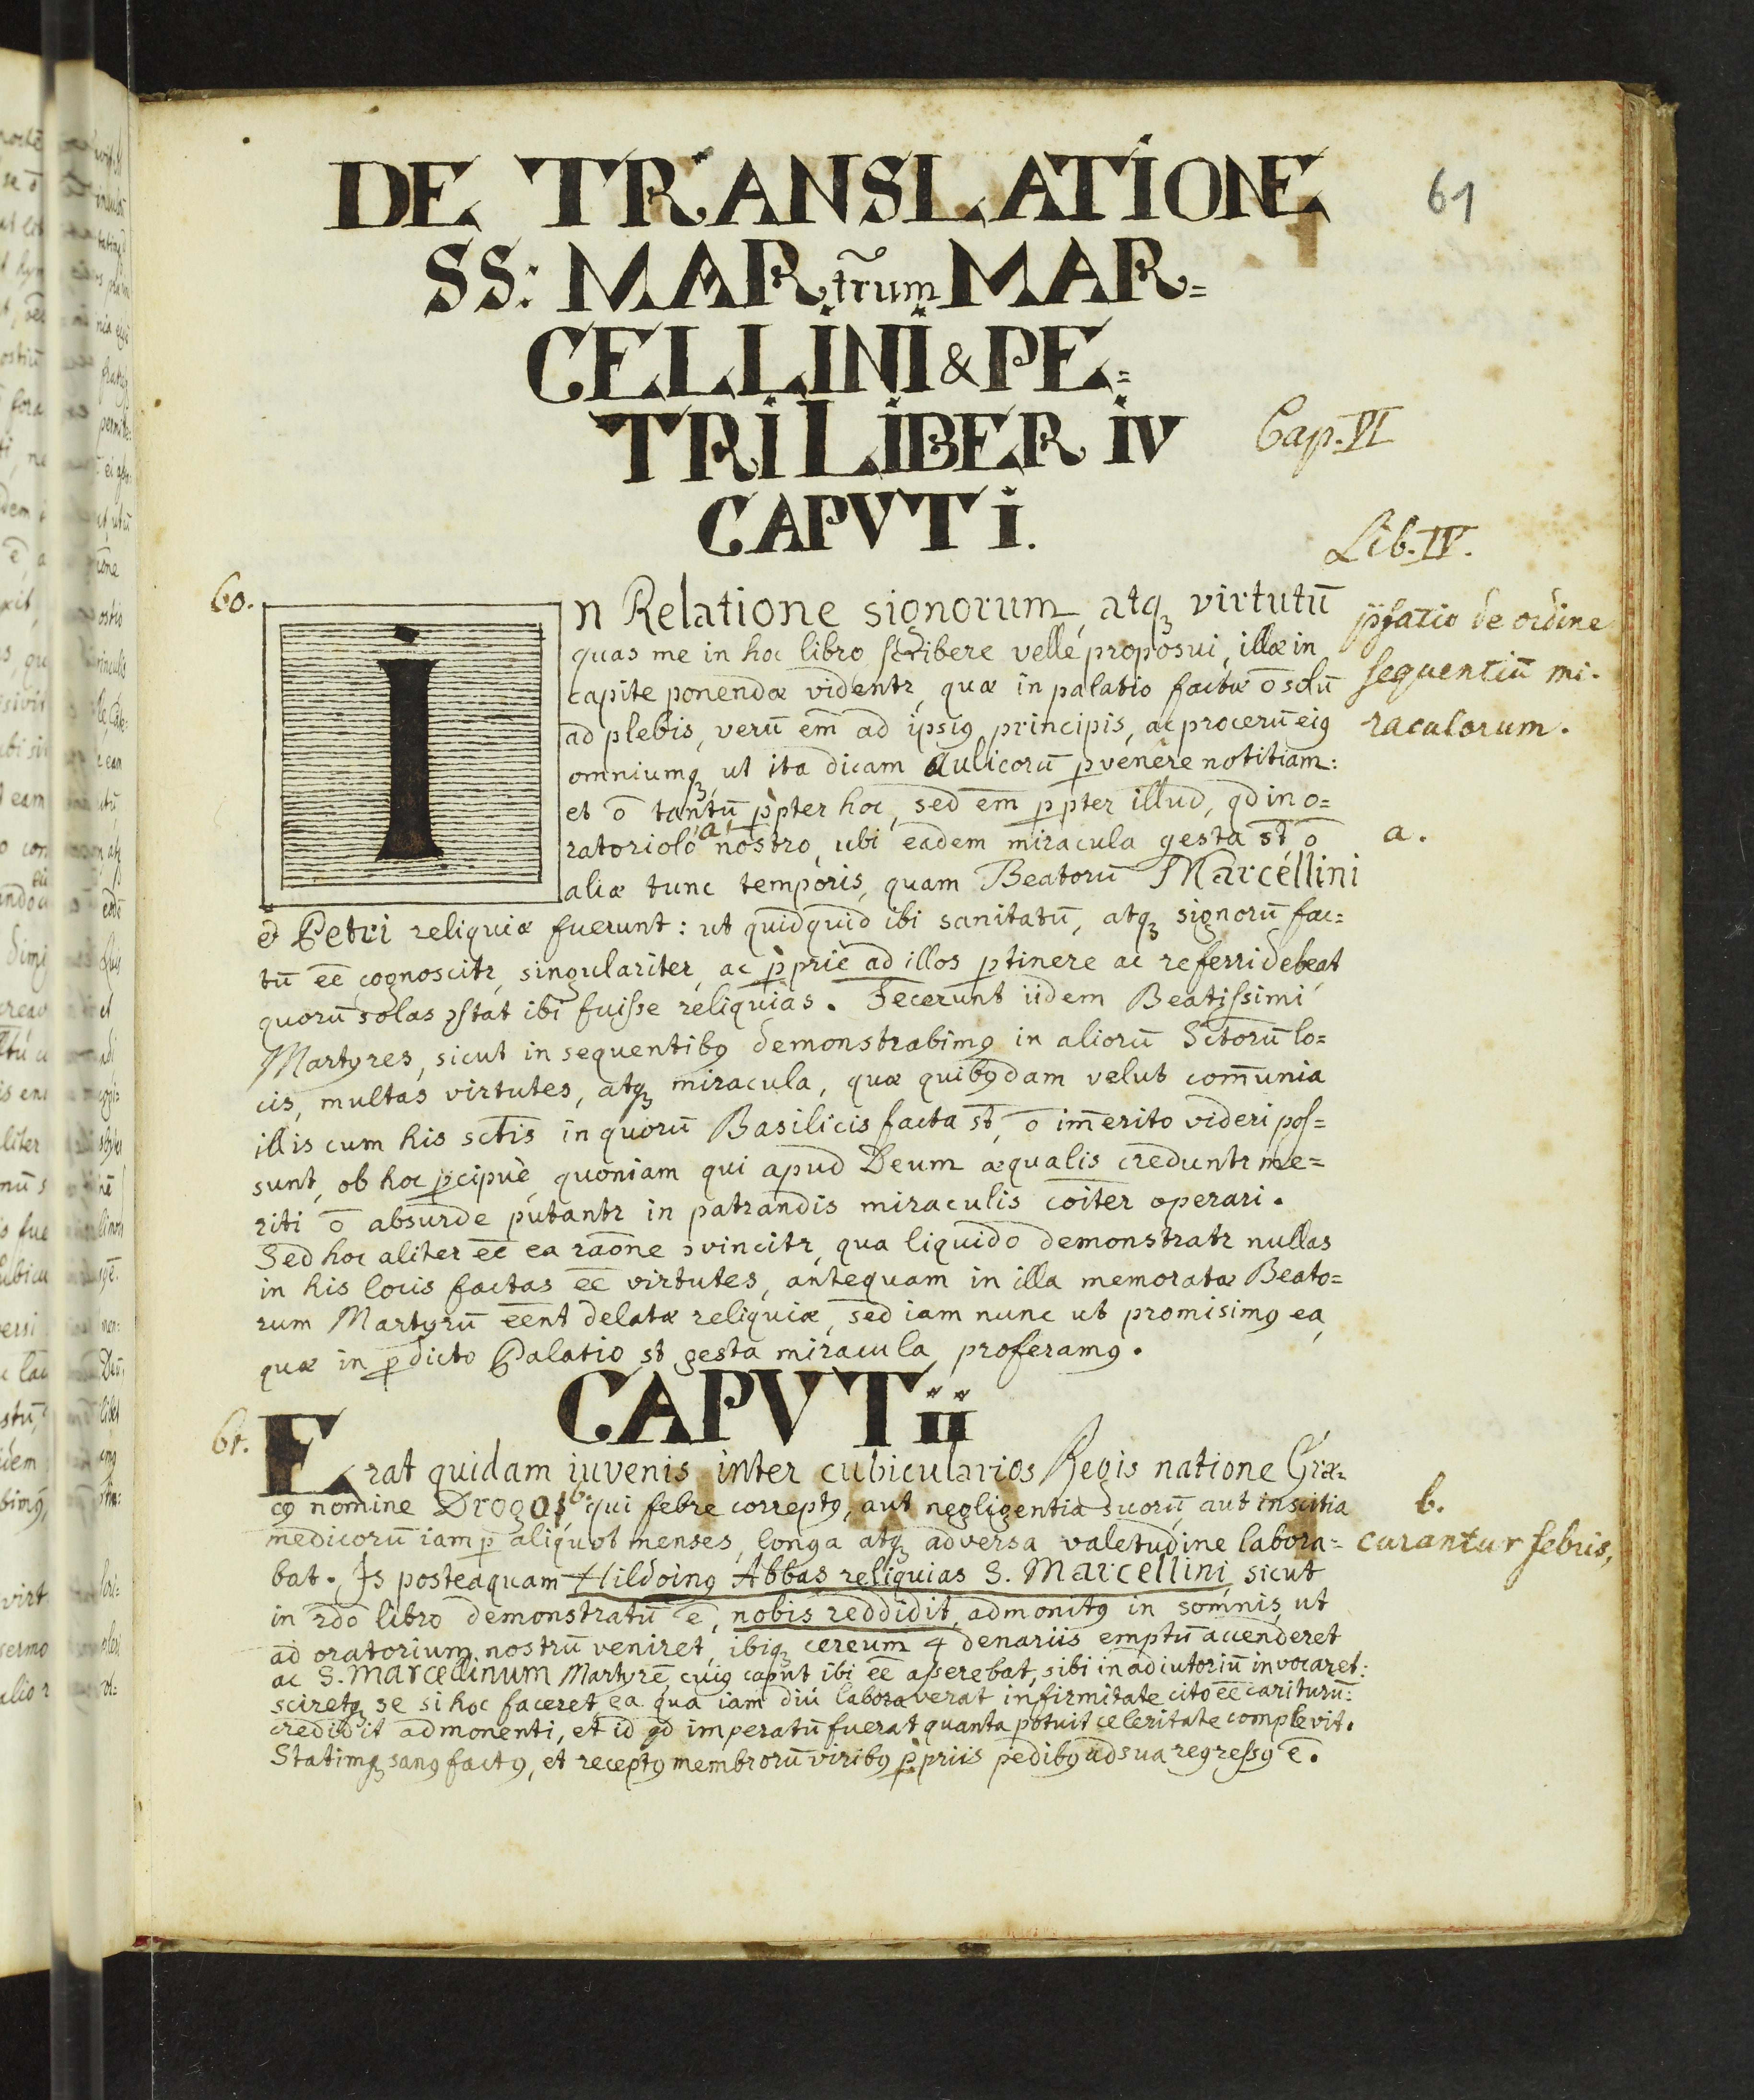 61
DE TRANSLATIONE
SS: MARtr̃um MAR=
CELLINI & PE=
TRI LIBER IV
Cap. VI
CAPVT I.
Lib. IV.
60.
In Relatione signorum, atqꝫ virtutū
quas me in hoc libro scribere velle proposui, illæ in
capite ponendæ videntr, quæ in palatio factæ ō solū
ad plebis, verū em̄ ad ipsiꝰ principis, ac procerū eiꝰ
omniumqꝫ ut ita dicam Aulicorū ꝑvenere notitiam:
et ō tantū ꝓpter hoc, sed em̄ ꝓpter illud, qd in o=
ratoriolo a nostro, ubi eadem miracula gesta st̄, ō
aliæ tunc temporis, quam Beatorū Marcellini
et Petri reliquiæ fuerunt: ut quidquid ibi sanitatū, atqꝫ signorū fac=
tū ēē cognoscitr, singulariter, ac ꝓpriè ad illos ꝑtinere ac referri debeat
quorū solas ꝯstat ibi fuisse reliquias. Fecerunt iidem Beatissimi
Martyres, sicut in sequentibꝰ demonstrabimꝰ in aliorū Sctorū lo=
cis, multas virtutes, atqꝫ miracula, quæ quibꝰdam velut com̄unia
illis cum his sctis in quorū Basilicis facta st̄, ō im̄erito videri pos=
sunt, ob hoc p̄cipuè, quoniam qui apud Deum æqualis creduntr me=
riti ō absurde putantr in patrandis miraculis cōiter operari.
Sed hoc aliter ēē ea raōne ꝯvincitr, qua liquido demonstratr nullas
in his locis factas ēē virtutes, antequam in illa memoratæ Beato=
rum Martyrū ēēnt delatæ reliquiæ, sed iam nunc ut promisimꝰ ea,
quæ in p̄dicto Palatio st̄ gesta miracula proferamꝰ.
p̄fatio de ordine
sequentiū mi-
raculorum.
a.
CAPVT II
61.
Erat quidam iuvenis inter cubicularios Regis natione Græ=
cꝰ nomine Drogos b. qui febre correptꝰ, aut negligentia suorū, aut inscitia
medicorū iam ꝑ aliquot menses, longa atqꝫ adversa valetudine labora=
bat. Is posteaquam Hildoinꝰ Abbas reliquias S. Marcellini, sicut
in 2do libro demonstratū ē, nobis reddidit, admonitꝰ in somnis, ut
ad oratorium nostrū veniret, ibiqꝫ cereum 4 denariis emptū accenderet
ac S. Marcellinum Martyrē, cuiꝰ caput ibi ēē asserebat, sibi in adiutoriū invocaret:
sciretqꝫ se si hoc faceret, ea qua iam diù laboraverat infirmitate cito ēē cariturū:
credidit admonenti, et id qd imperatū fuerat quanta potuit celeritate complevit.
Statimqꝫ sanꝰ factꝰ, et receptꝰ membrorū viribꝰ ꝓpriis pedibꝰ ad sua regressꝰ ē.
b.
curantur febris,